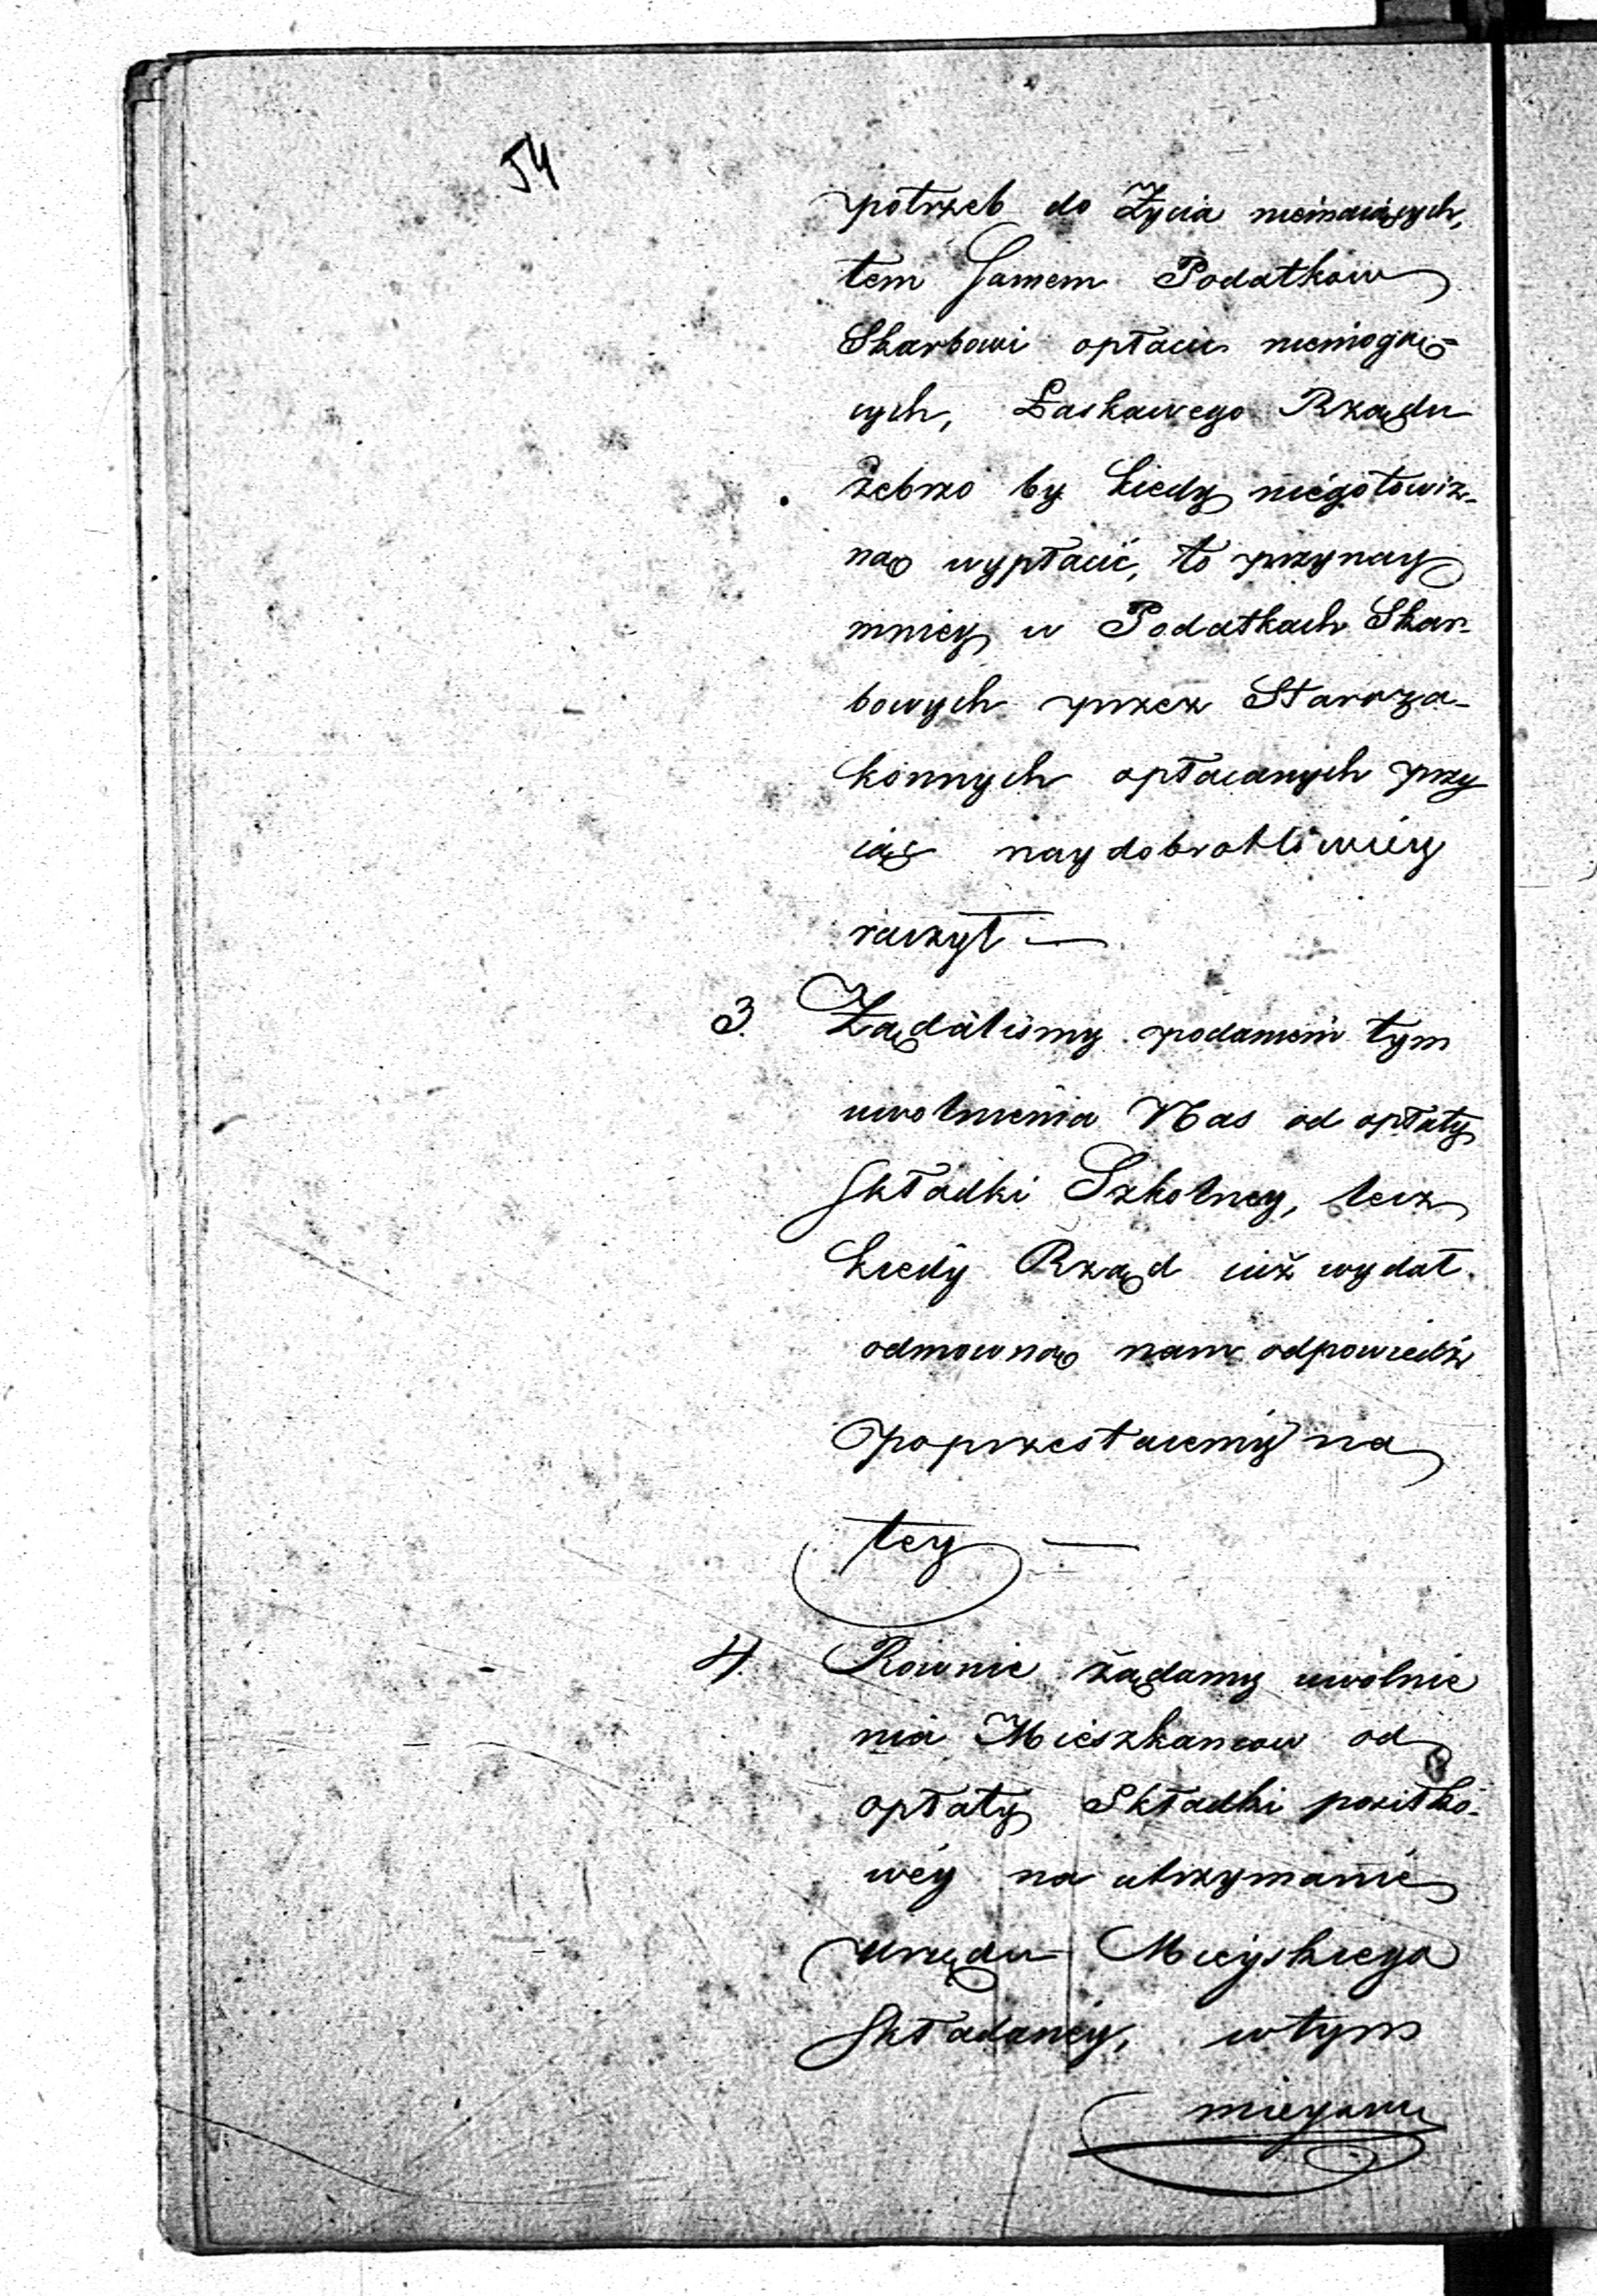 54
potrzeb do Życia niemaiących,
tem Samem Podatkow
Skarbowi opłacić niemogą-
cych, Łaskawego Rządu
żebrzo by kiedy niegotowiz-
ną wypłacić, to przynay
mniey w Podatkach Skar-
bowych przez Staroza-
konnych opłacanych przy
iąć naydobrotliwiey
raczył —
3. Żądaliśmy podaniem tym
uwolnienia Nas od opłaty
Składki Szkolney, lecz
kiedy Rząd iuż wydał
odmowną nam odpowiedź
poprzestaiemy na
tey —
4. Rownie żądamy uwolnie
nia Mieszkancow od
opłaty Składki posiłko-
wéy na utrzymanie
urzędu Mieyskiego
Składaney, w tym
mieyscu